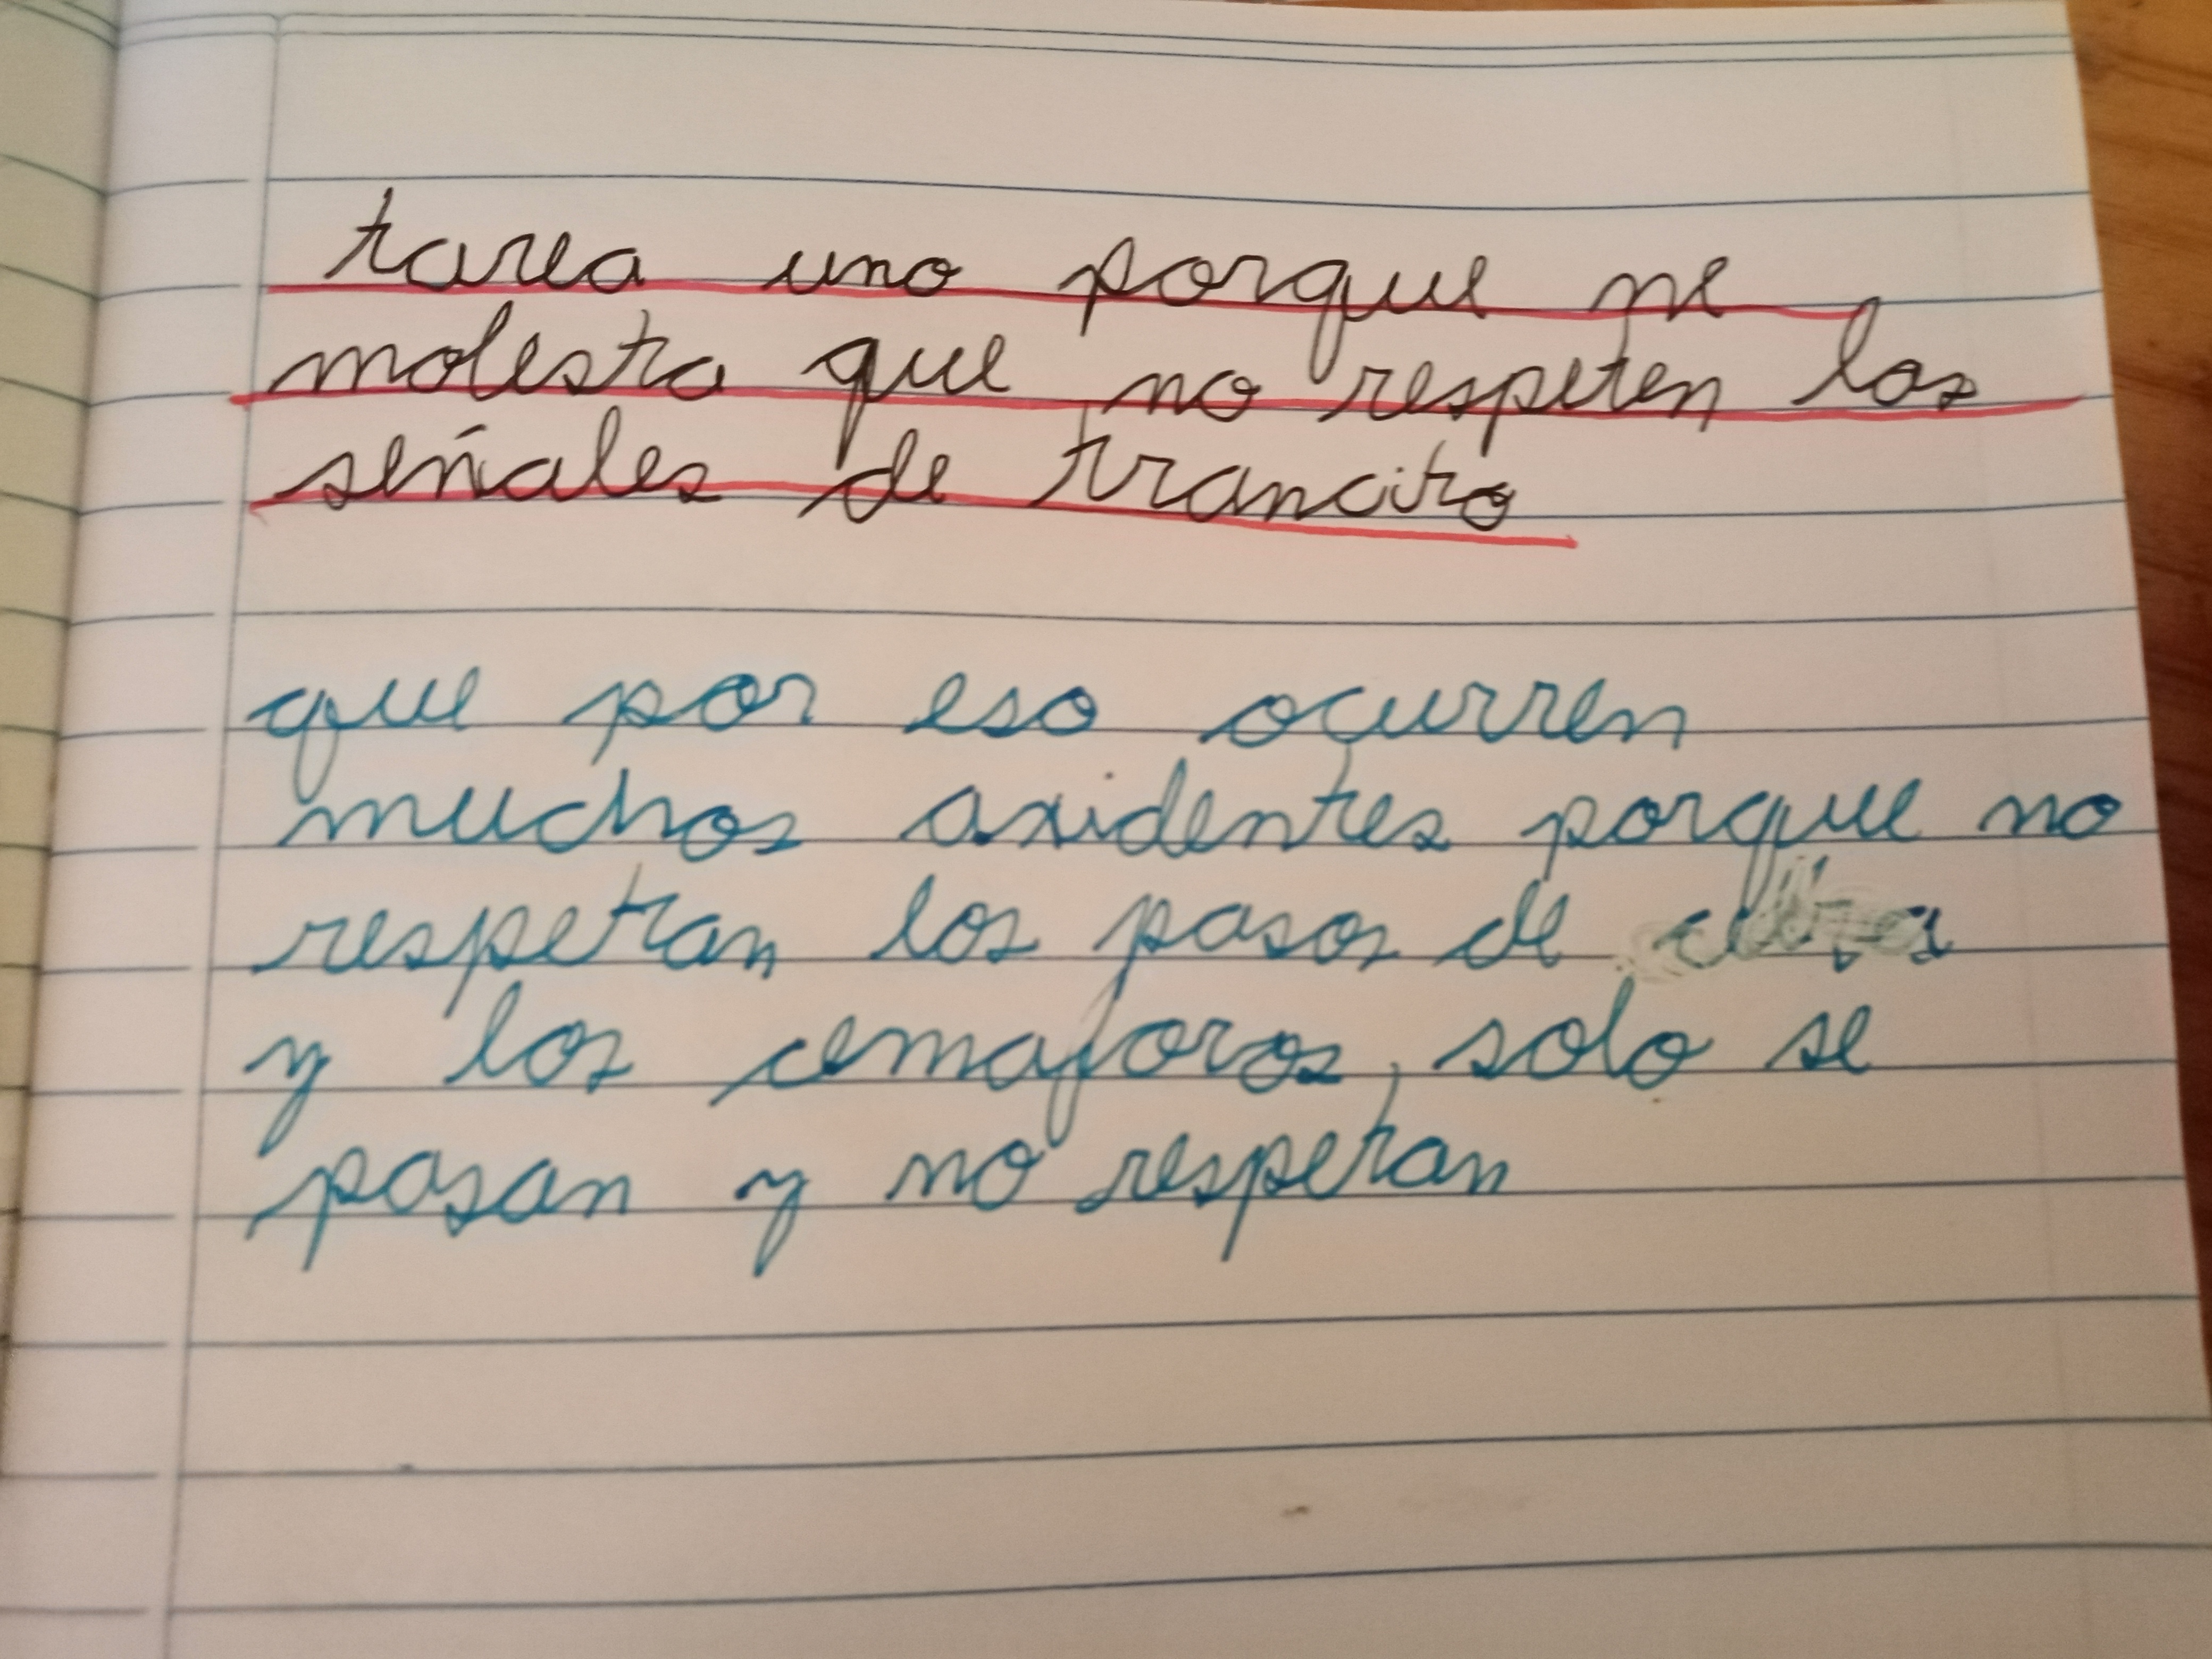 tarea uno porque me
molesta que no respeten las
señales de trancito
que por eso ocurren
muchos axidentes porque no
respetan los pasos de
y los cemaforos, solo se
pasan y no respetan